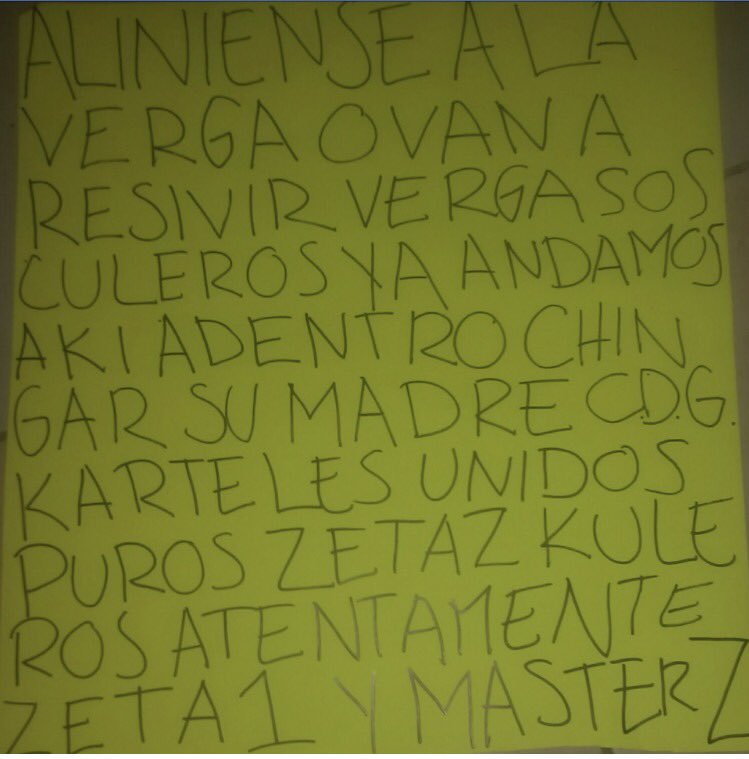 ALINIENSE A LA
VERGA O VAN A
RESIVIR VERGASOS
CULEROS YA ANDAMOS
AKI ADENTRO CHIN
GAR SU MADRE C.D.G.
KARTELES UNIDOS
PUROS ZETAZ KULE
ROS ATENTAMENTE
ZETA 1 Y MASTER Z